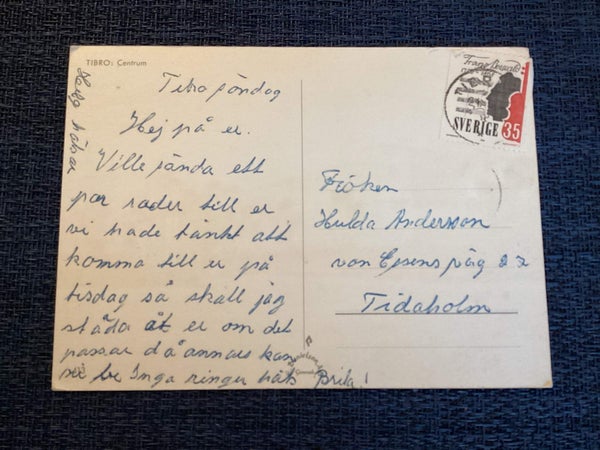 TIBRO: Centrum
Tibro söndag
Hej på er.
Ville sända ett
par rader till er
vi hade tänkt att
komma till er på
tisdag så skall jag
städa åt er om det
passar då annars kan
ni be Inga ringer häls Brita!
Fröken
Hulda Andersson
von Essens väg 22
Tidaholm
SVERIGE 35